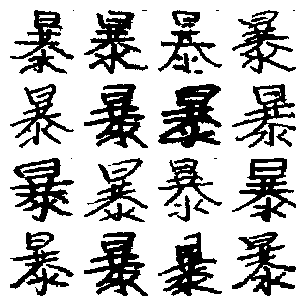 暴暴暴暴
暴暴暴暴
暴暴暴暴
暴暴暴暴